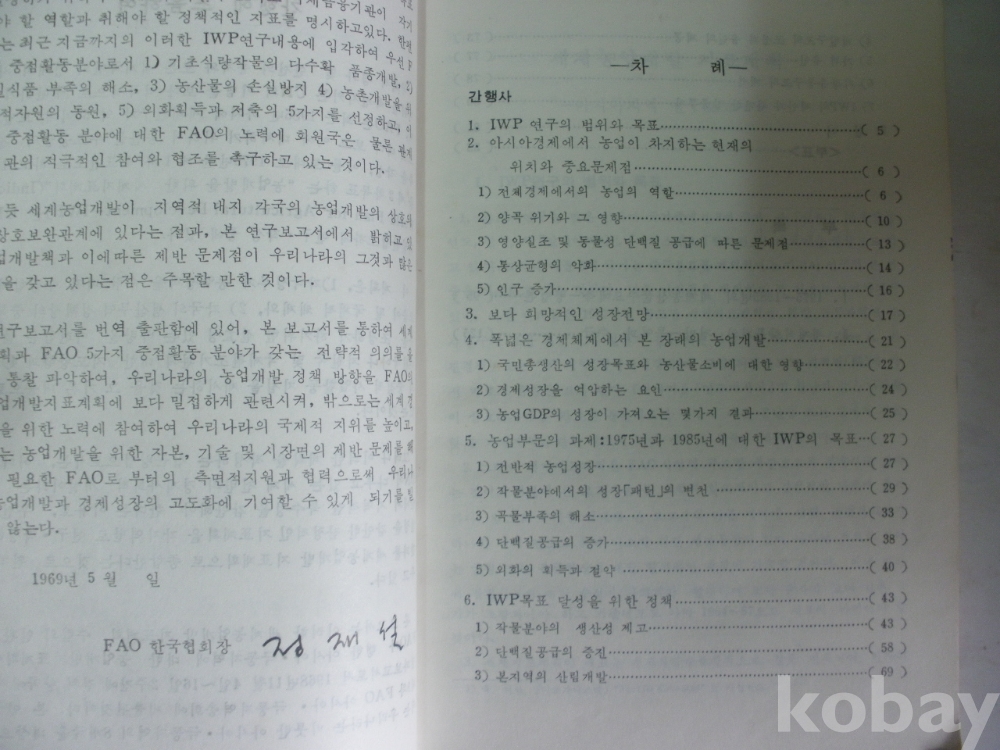 할 역할과 취해야 할 정책적인 지표를 명시하고있다.
는 최근 지금까지의 이러한 IWP연구내용에 입각하여 우선
중점활동분야로서 1) 기초식량작물의 다수확 품종개발, 2)
식품 부족의 해소, 3) 농산물의 손실방지 4) 농촌개발을 위
적자원의 동원, 5) 외화획득과 저축의 5가지를 선정하고, 이
중점활동 분야에 대한 FAO의 노력에 회원국은 물론 관계
관의 적극적인 참여와 협조를 촉구하고 있는 것이다.
듯 세계농업개발이 지역적 내지 각국의 농업개발의 상호의
상호보완관계에 있다는 점과, 본 연구보고서에서 밝히고 있
업개발책과 이에따른 제반 문제점이 우리나라의 그것과 많은
을 갖고 있다는 점은 주목할 만한 것이다.
연구보고서를 번역 출판함에 있어, 본 보고서를 통하여 세계
획과 FAO 5가지 중점활동 분야가 갖는 전략적 의의를
통찰 파악하여, 우리나라의 농업개발 정책 방향을 FAO의
업개발지표계획에 보다 밀접하게 관련시켜, 밖으로는 세계
을 위한 노력에 참여하여 우리나라의 국제적 지위를 높이고,
는 농업개발을 위한 자본, 기술 및 시장면의 제반 문제를
필요한 FAO로 부터의 측면적지원과 협력으로써 우리나
농업개발과 경제성장의 고도화에 기여할 수 있게 되기를
않는다.
1969년 5월 일
FAO 한국협회장 정재설
—차 례—
간행사
1. IWP 연구의 범위와 목표……( 5 )
2. 아시아경제에서 농업이 차지하는 현재의
위치와 중요문제점……( 6 )
1) 전체경제에서의 농업의 역할……( 6 )
2) 양곡 위기와 그 영향……( 10 )
3) 영양실조 및 동물성 단백질 공급에 따른 문제점……( 13 )
4) 통상균형의 악화……( 14 )
5) 인구 증가……( 16 )
3. 보다 희망적인 성장전망……( 17 )
4. 폭넓은 경제체제에서 본 장래의 농업개발……( 21 )
1) 국민총생산의 성장목표와 농산물소비에 대한 영향……( 22 )
2) 경제성장을 억압하는 요인……( 24 )
3) 농업GDP의 성장이 가져오는 몇가지 결과……( 25 )
5. 농업부문의 과제:1975년과 1985년에 대한 IWP의 목표…( 27 )
1) 전반적 농업성장……( 27 )
2) 작물분야에서의 성장「패턴」의 변천……( 29 )
3) 곡물부족의 해소……( 33 )
4) 단백질공급의 증가……( 38 )
5) 외화의 획득과 절약……( 40 )
6. IWP목표 달성을 위한 정책……( 43 )
1) 작물분야의 생산성 제고……( 43 )
2) 단백질공급의 증진……( 58 )
3) 본지역의 산림개발……( 69 )
kobay